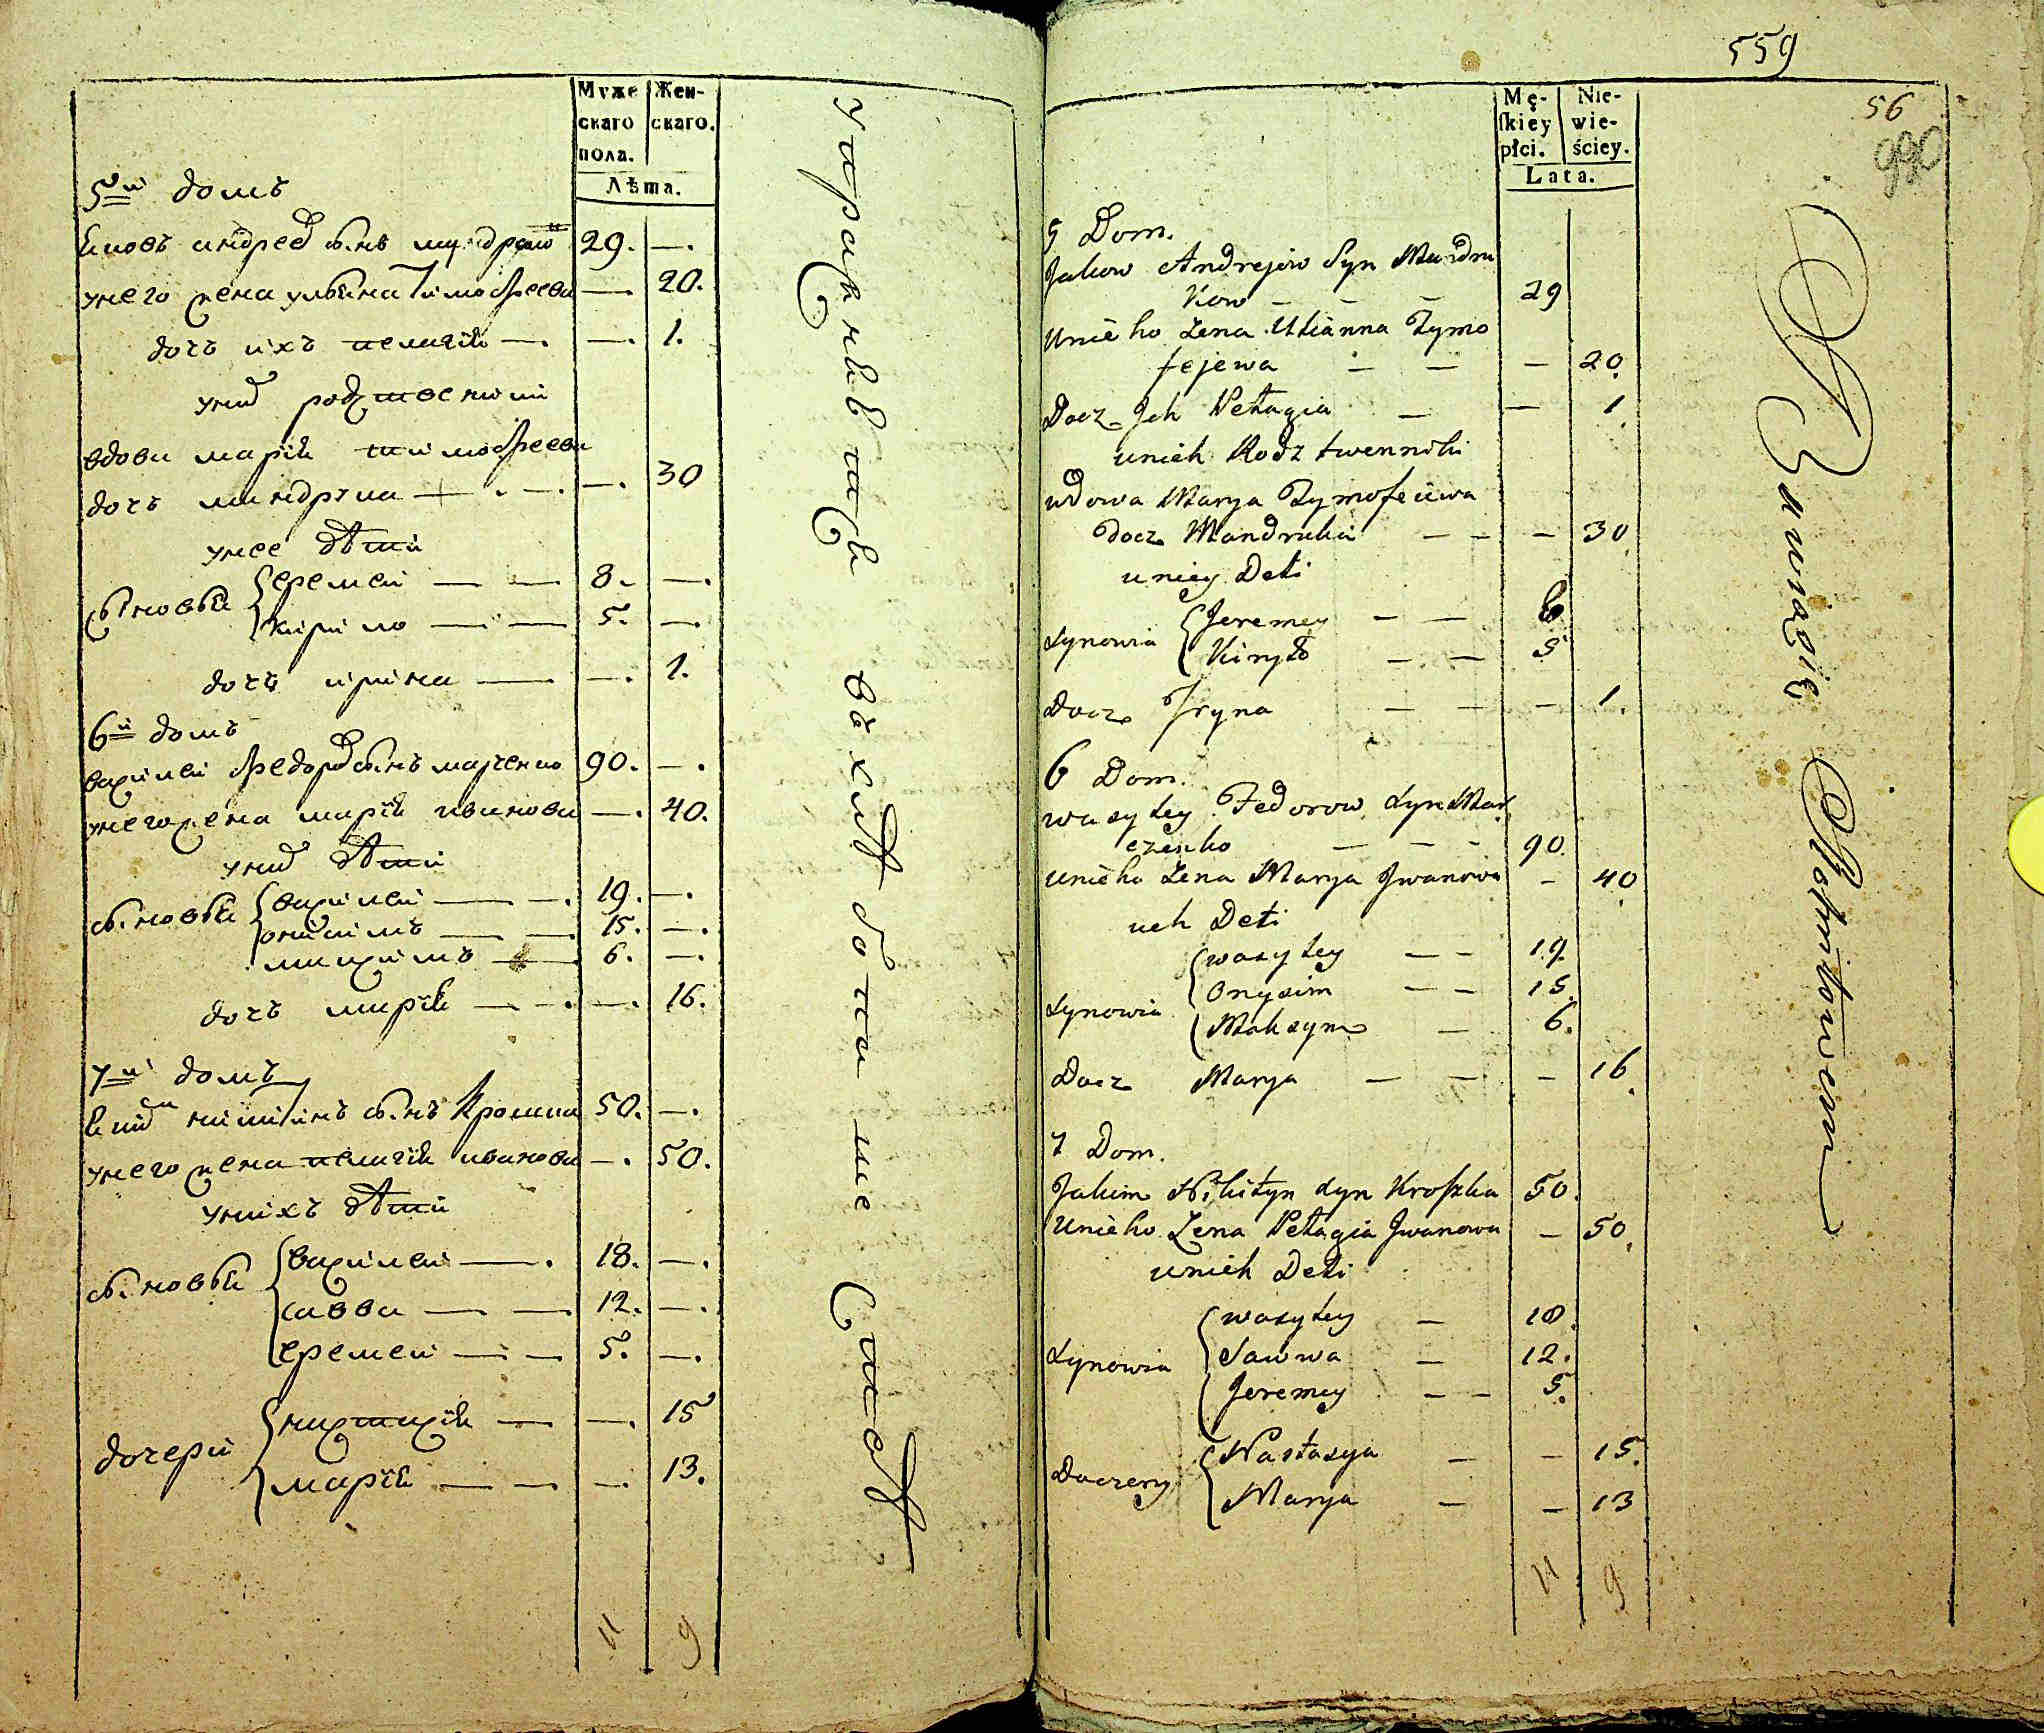 Муже
скаго
пола.
Жен-
скаго.
Лѣта.
5й домъ
Яковъ андреевъ сынъ 29. —.
унего жена ульяна Тимофеева — 20.
дочь ихъ пелагія —. —. 1.
родственики
вдова марія тимофеева
дочь мандрука — —. 30
унее дѣти
сыновья еремей — — 8. —.
кирило — — 5. —.
дочь ирина — —. 1.
6й домъ
василей федоровъ сынъ марченко 90. —.
унего жена марія иванова —. 40.
дѣти
сыновья василей — —. 19. —.
онисимъ — — 15. —.
максимъ — — 6. —.
дочь марія — —. —. 16.
7й домъ
никитинъ сынъ Крошка 50. —.
унего жена пелагія иванова —. 50.
унихъ дѣти
сыновья василей —. 18. —.
савва — — 12. —.
еремей — — 5. —.
дочери настасія — —. 15
марія — — —. 13.
11 9
559
56
990
Mę-
ſkiey
płci.
Nie-
wie-
ściey.
Lata.
5 Dom.
Jakow Andrejow Syn Mandru
kow — — — 29
Unieho Zena Ulianna Tymo
fejewa — — — 20.
Docz Jch Pełagia — — 1.
unich Rodztwenniki
wdowa Marya Tymofeiewa
docz Mandruka — — — 30.
uniey Deti
synowia Jeremey — — 8
Kiryło — — 5
Docz Jryna — — — 1.
6 Dom.
wasyley Fedorow syn Mar
czenko — — — 90.
unieho Zena Marya Jwanowa — 40.
uch Deti
synowia wasyley — — 19.
Onysim — — 15.
Maksym — 6.
Docz Marya — — — 16.
7 Dom.
Jakim Nikityn syn Kroſzka 50.
Unieho Zena Pełagia Jwanowa — 50.
unich Deti
synowia wasyley — 18.
Sawwa — 12.
Jeremey — — 5.
Doczery Nastasya — — 15.
Marya — — 13
11 9